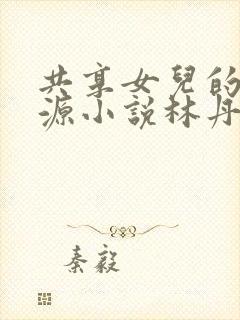 共享女兒的
源小說林丹
秦毅